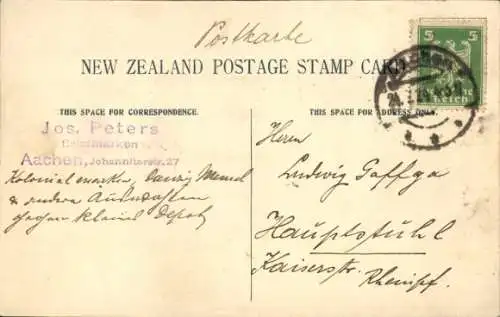 Postkarte
NEW ZEALAND POSTAGE STAMP CARD
5
THIS SPACE FOR CORRESPONDENCE.
THIS SPACE FOR ADDRESS ONLY.
Jos. Peters
Briefmarken
Aachen, Johanniterstr. 27
Kolonialmarken, Danzig Memel
& andere
gegen kleines Depot
Herrn
Ludwig Gaffga
Hauptstuhl
Kaiserstr.
Rheinpf.